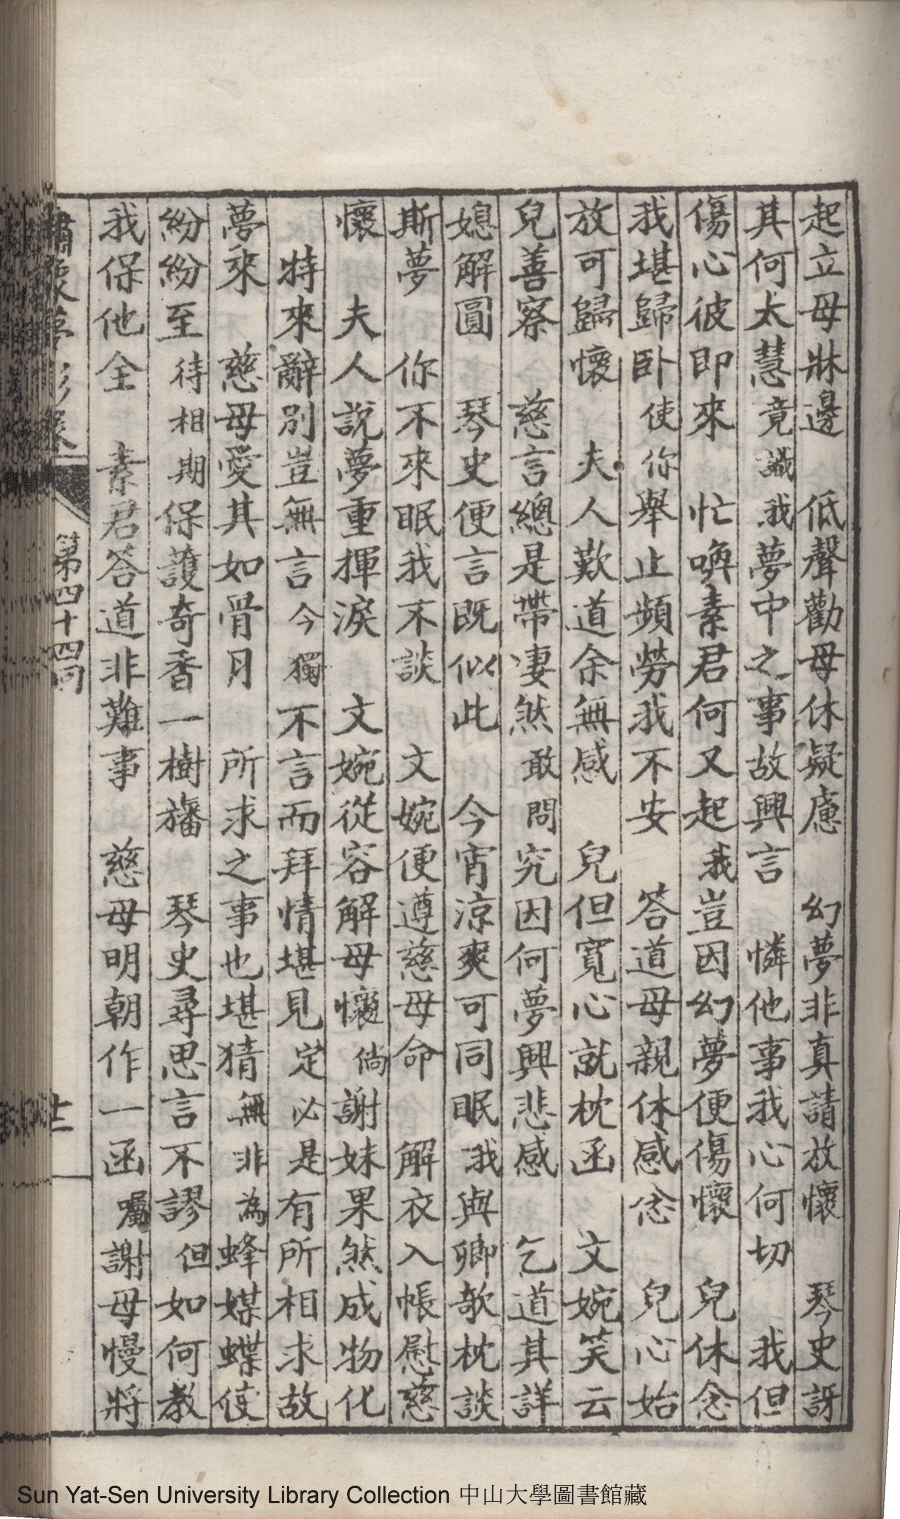 起立母牀邊　低聲勸母休疑慮　幻夢非真請放懷　琴史訝
其何太慧竟識我夢中之事故興言　憐他事我心何切　我但
傷心彼即來　忙喚素君何又起我豈因幻夢便傷懷　兒休念
我堪歸卧使你舉止頻勞我不安　答道母親休感念　兒心始
放可歸懷　夫人歎道余無感　兒但寬心就枕函　文婉笑云
兒善察　慈言總是帶凄然敢問究因何夢興悲感　乞道其詳
媳解圓　琴史便言既似此　今宵涼爽可同眠我與卿欹枕談
斯夢　你不來眠我不談　文婉便遵慈母命　解衣入帳慰慈
懷　夫人說夢重揮淚　文婉從容解母懷倘謝妹果然成物化
特來辭別豈無言今獨不言而拜情堪見定必是有所相求故
夢來　慈母愛其如骨月　所求之事也堪猜無非為蜂媒蝶使
紛紛至待相期保護奇香一樹旛　琴史尋思言不謬但如何教
我保他全　素君答道非難事　慈母明朝作一函囑謝母慢將
第四十四回
Sun Yat-Sen University Library Collection 中山大學圖書館藏